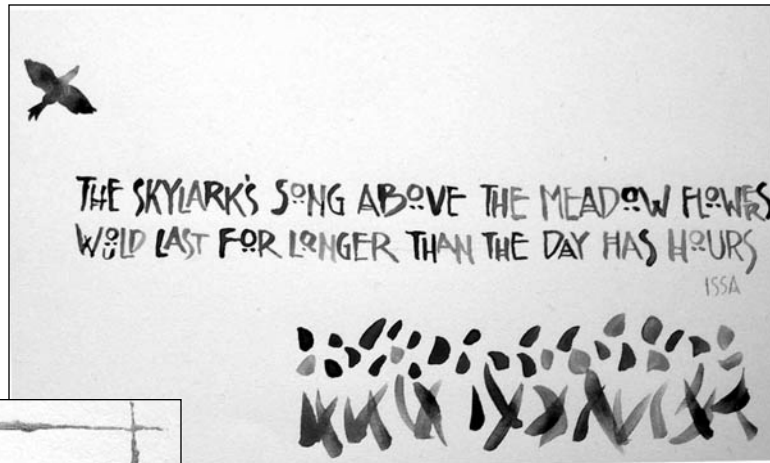 THE SKYLARK'S SONG ABOVE THE MEADOW FLOWERS
WOULD LAST FOR LONGER THAN THE DAY HAS HOURS
ISSA